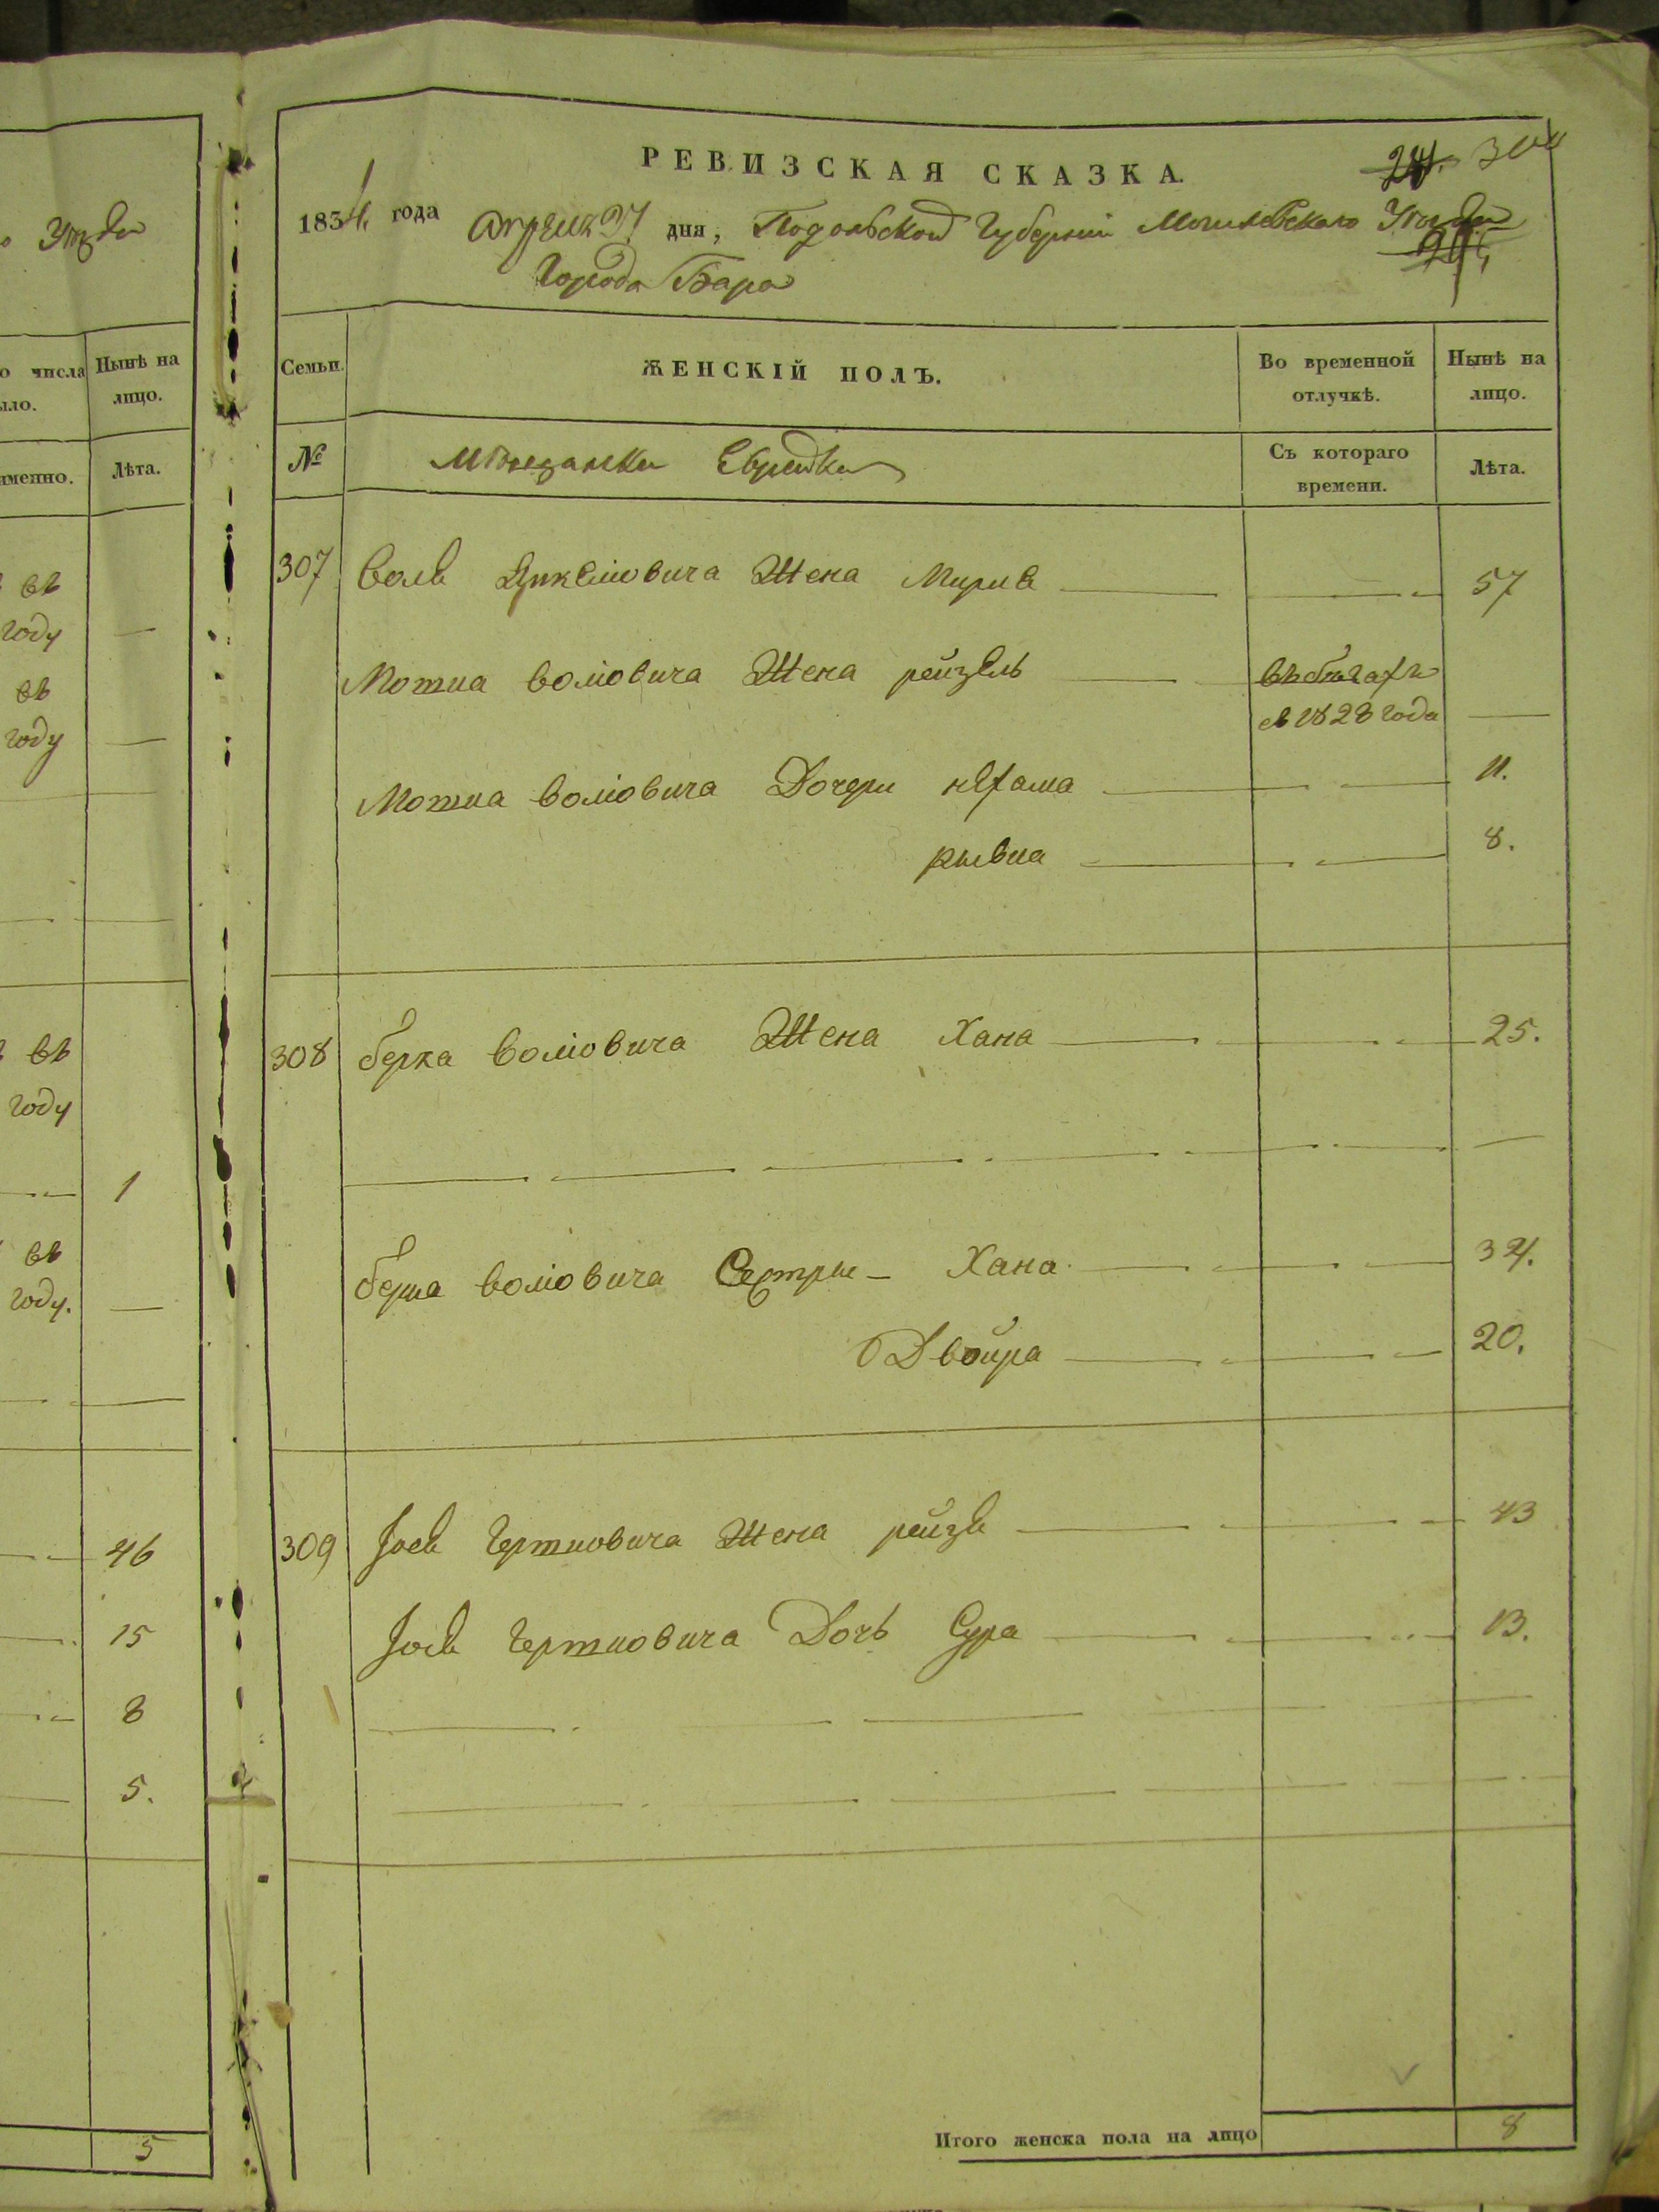 о Уѣзда
о числа
ыло.
Нынѣ на
лицо.
именно.
Лѣта.
въ
году
въ
году
въ
году
1
въ
году.
46
15
8
5.
5
РЕВИЗСКАЯ СКАЗКА.
300
1834. года Апреля 27 дня, Подольской Губерніи Могилевскаго Уѣзда
Города Бара
Семьи.
ЖЕНСКІЙ ПОЛЪ.
Во временной
отлучкѣ.
Нынѣ на
лицо.
№
Мѣщанки Еврейки
Съ котораго
времени.
Лѣта.
307 Волв Жена 57
Мотиа Воліовича Жена рейзель въ бѣгахъ
съ 1828 года
Мотиа Воліовича Дочери нехама 11.
рывиа 8.
308 берка Воліовича Жена Хана 25.
Воліовича Сестры Хана 34.
Двойра 20.
309 Жена рейзя 43
Дочь Сура 13.
Итого женска пола на лицо 8